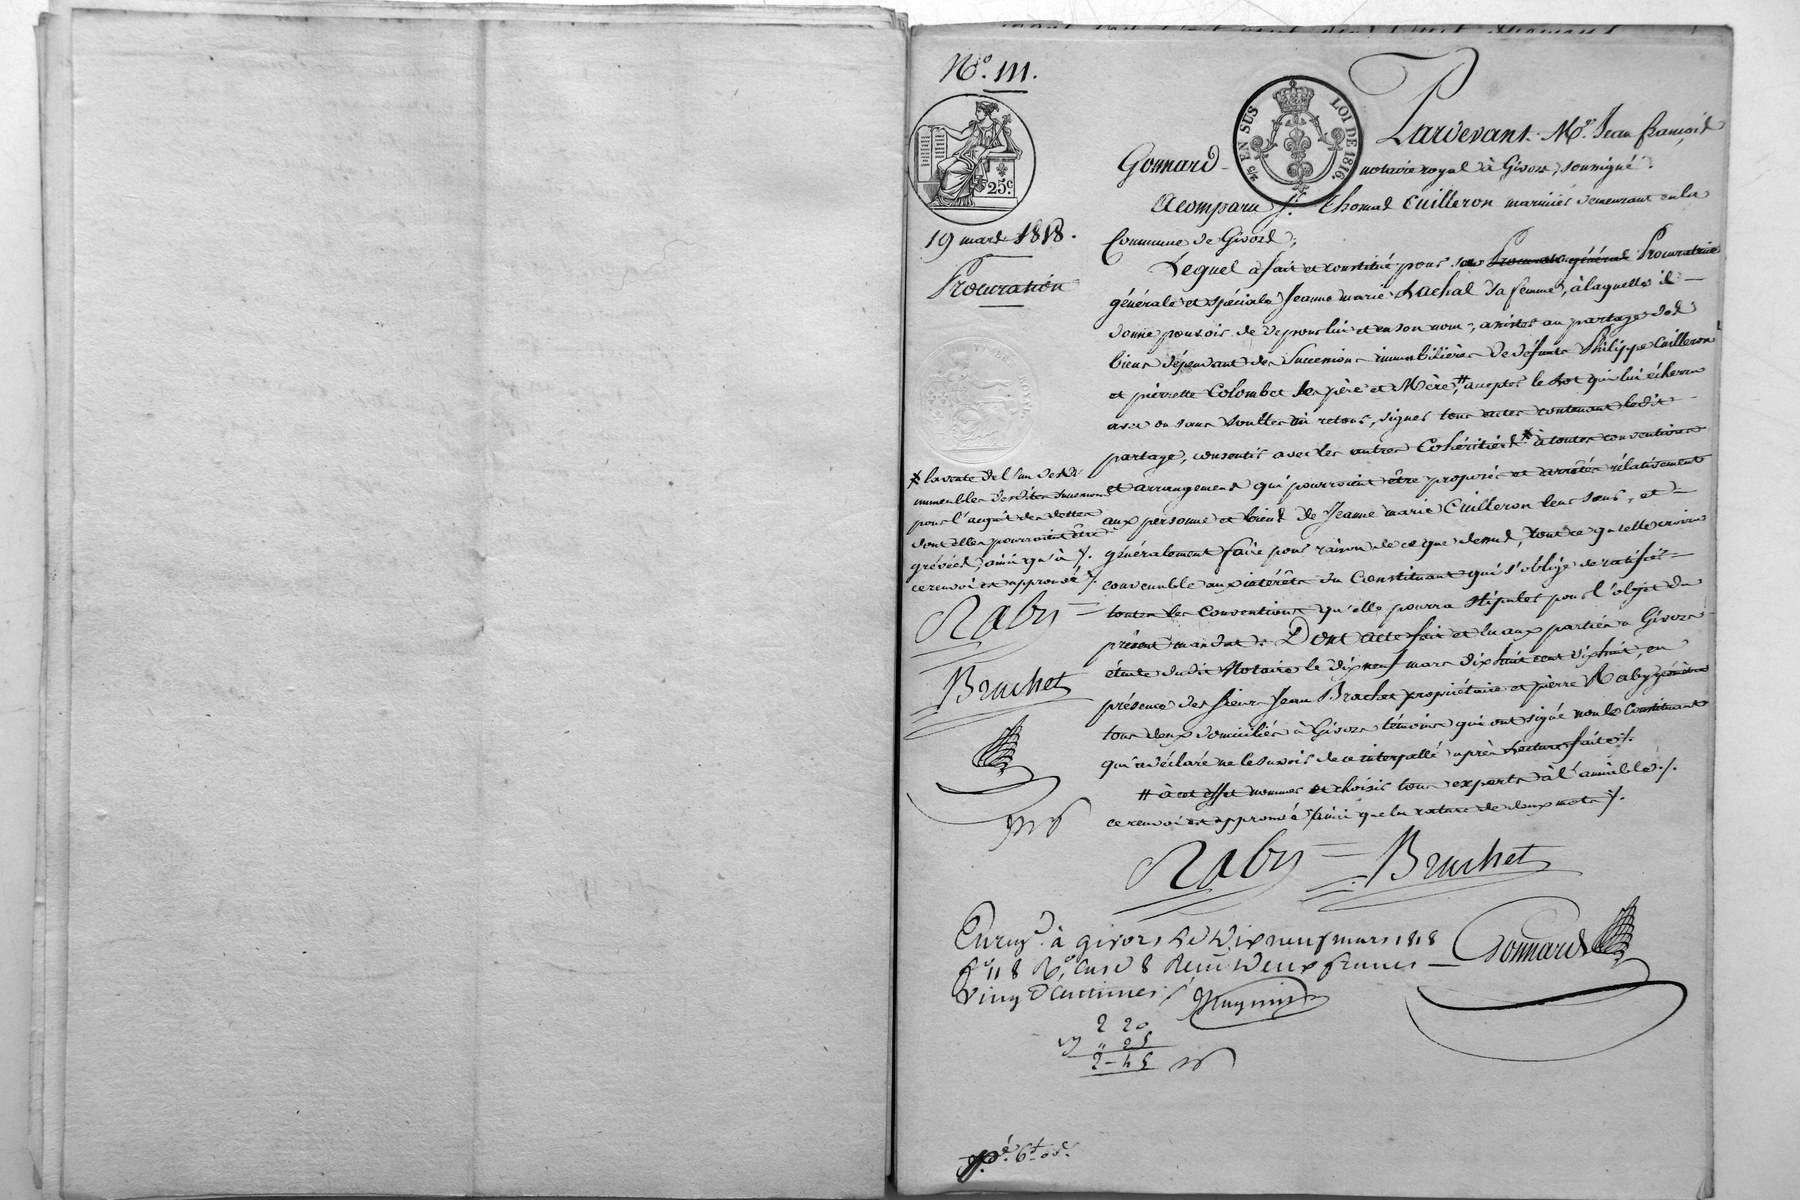 N.º 111.
25.c
EN SUS LOI DE 1816.
19 mars 1818.
Procuration
Pardevant M.e Jean françois
Gonnard notaire royal à Givors, soussigné.
A comparu s.r Thomas Cuilleron marinier demeurant en la
Commune de Givors;
Lequel a fait et constitué pour sa Procuratrice
générale et spéciale Jeanne marie Lachal sa femme, à laquelle il
donne pouvoir de de pour lui et en son nom, assister au partage des
biens dépendant des Successions immobilières de défunts Philippe Cuilleron
et pierrette Colombet ses père et Mère, # accepter le Lot qui lui écherra
avec ou sans soultes ni retour, signer tous actes contenant ledit
partage, consentir avec les autres Cohéritiers * à toutes conventions
et arrangemens qui pourroient être proposés et arrêtés rélativement
aux personne et biens de Jeanne marie Cuilleron leur sœur, et
généralement faire pour raison de ce que dessus, tout ce qu'elle croira
convenable aux intérêts du Constituant qui s'oblige de ratifier
toutes les Conventions qu'elle pourra stipuler pour l'objet du
présent mandat. Dont acte fait et lu aux parties à Givors
étude dudit Notaire le dix neuf mars dix huit cent dix huit, en
présence des sieurs Jean Brachet propriétaire et pierre Raby
tous deux domiciliés à Givors témoins qui ont signé non le Constituant
qui a déclaré ne le savoir de ce interpellé après Lecture faite ./.
# à cet effet nommer et choisir tous experts à l'amiable ./.
ce renvoi est approuvé ainsi que la rature de deux mots ./.
* la vente de l'un desdits
immeubles desdites successions
pour l'acquit des dettes
dont elles pourroient être
grévées, ainsi qu'à ./.
ce renvoi est approuvé ./.
Raby
Brachet
Raby Brachet
Gonnard
Enreg.é à givors le Dix neuf mars 1818
f.o 118 R.o case 8 Reçu Deux francs
Vingt Centimes
2 20
" 25
2-45